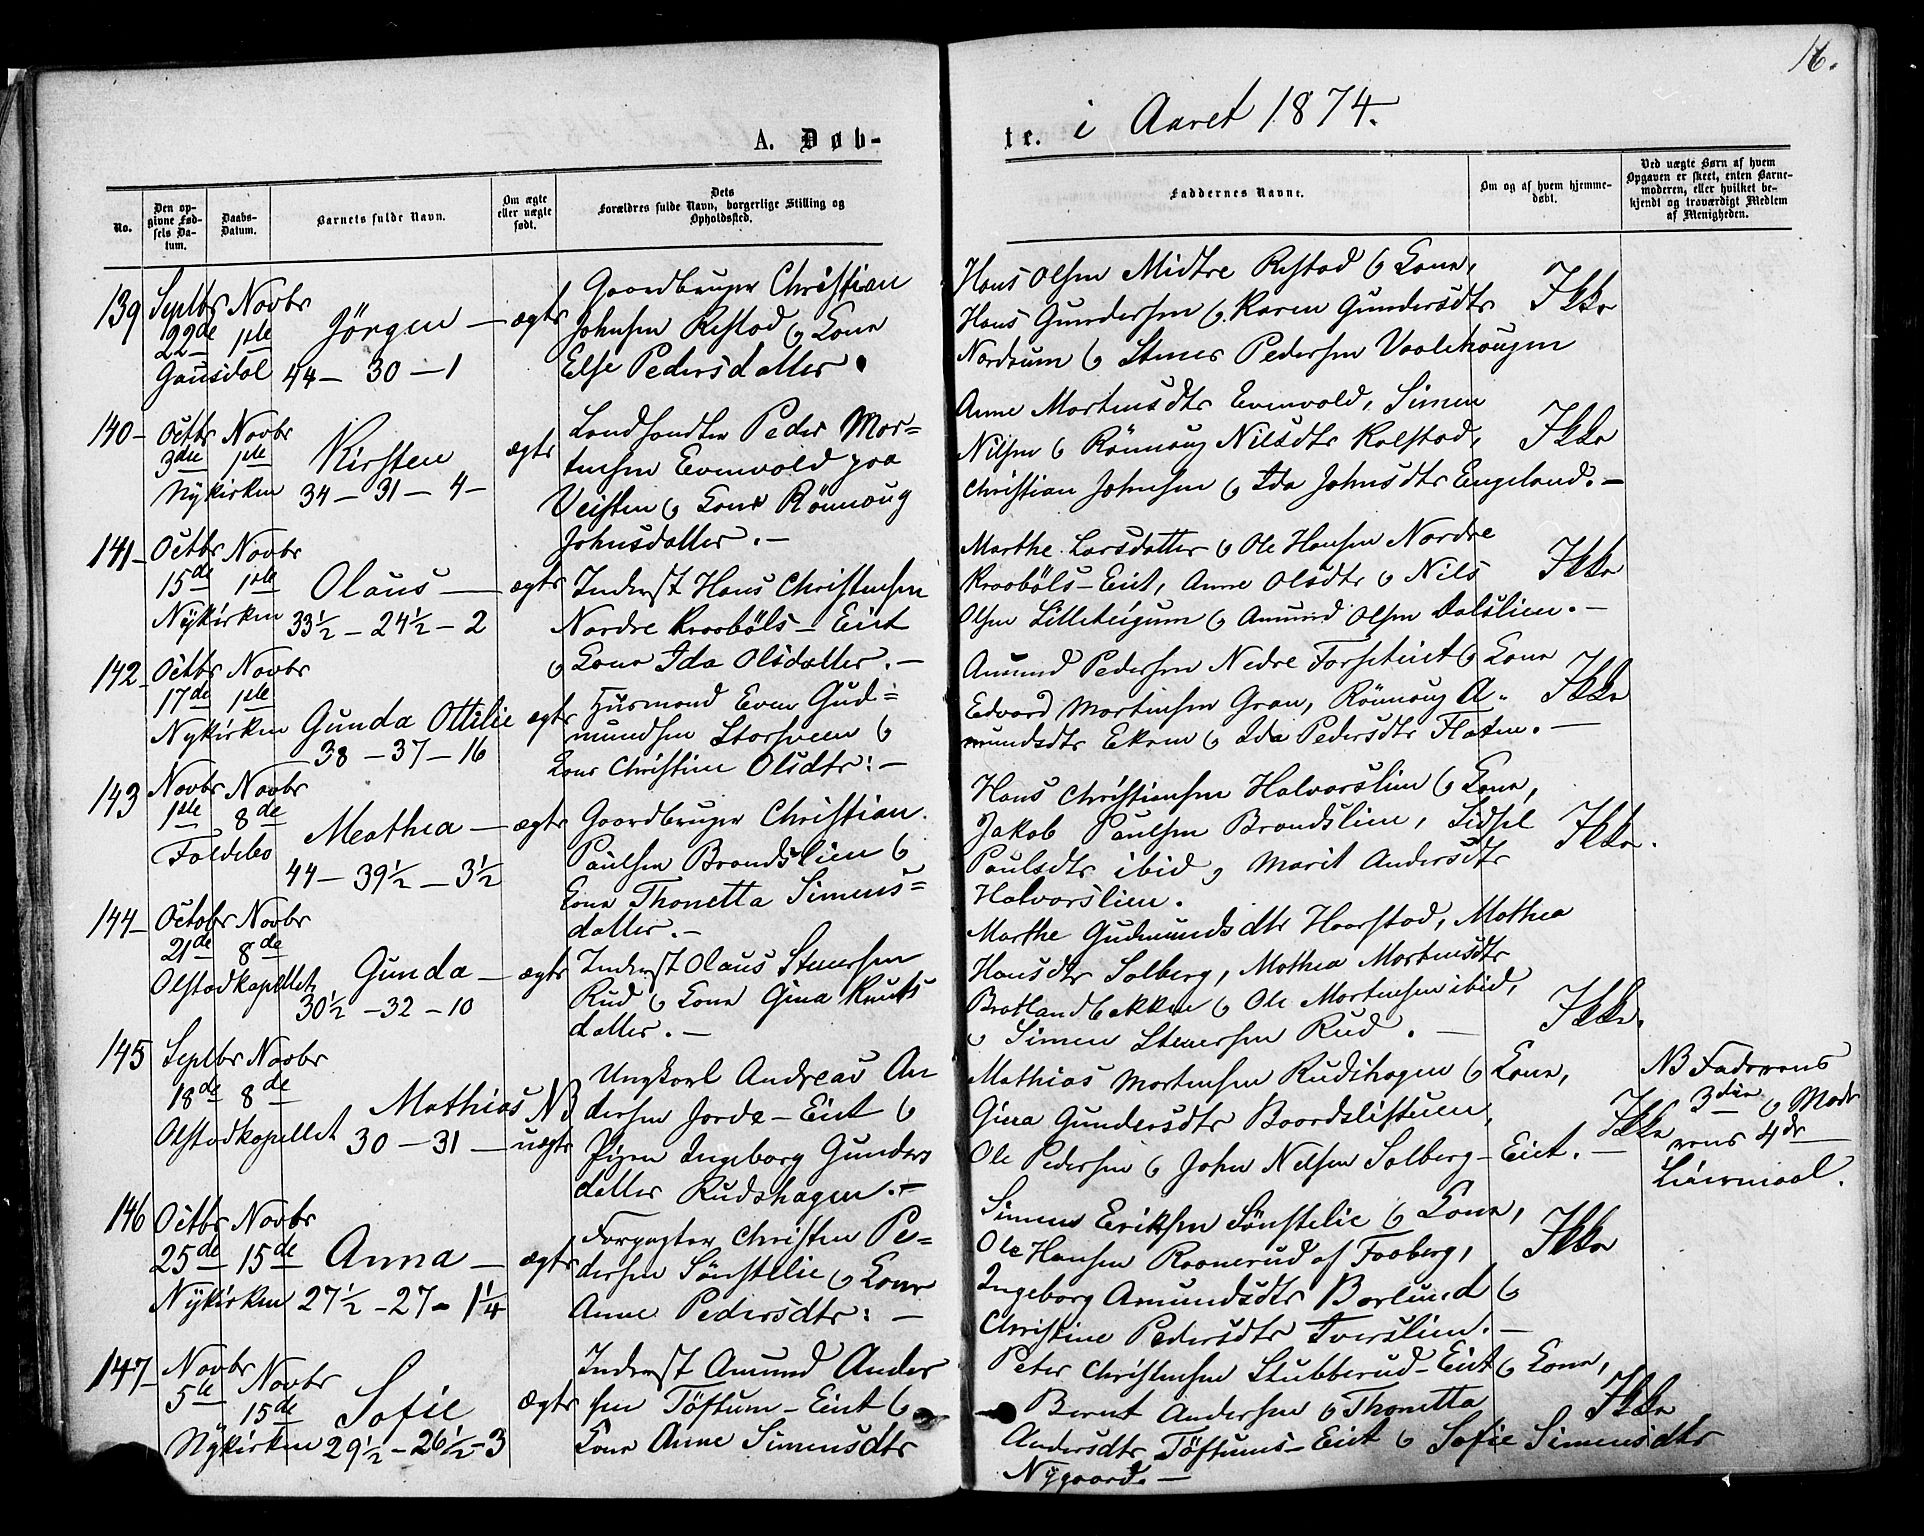 16.
A. Døb-
te. i Aaret 1874.
No.
Den op-
givne Fød-
sels Da-
tum.
Daabs-
Datum.
Barnets fulde Navn.
Om ægte
eller uægte
født.
Dets
Forældres fulde Navn, borgerlige Stilling og
Opholdssted.
Faddernes Navne.
Om og af hvem hjemme-
døbt.
Ved uægte Børn af hvem
Opgaven er skeet, enten Barne-
moderen, eller hvilket be-
kjendt og troværdigt Medlem
af Menigheden.
139 Septbr Novbr
22de 1ste Jörgen — ægte
Gausdal 44 — 30 — 1
Gaardbruger Christian
Johnsen Restad og Kone
Else Pedersdatter.
Hans Olsen Midtre Restad og Kone,
Hans Gundersen og Karen Gundersdtr
Nordrum og Stener Pedersen Vaalehaugen
Ikke
140 — Octbr Novbr
3die 1ste Kirsten ægte
Nykirken 34 — 31 — 4 —
Landhandler Peder Mor=
tensen Evenvold paa
Veisten og Kone Rönnoug
Johnsdatter. —
Anne Mortensdtr Evenvold, Simen
Nilsen og Rönnoug Nilsdtr Kolstad,
Christian Johnsen og Ida Johnsdtr Engeland. —
Ikke
141 — Octbr Novbr
15de 1ste Olaus — ægte
Nykirken 33½ — 24½ — 2
Inderst Hans Christensen
Nordre Kraaböls — Eiet
og Kone Ida Olsdatter. —
Marthe Larsdatter og Ole Hansen Nordre
Kraaböls — Eiet, Anne Olsdtr og Nils
Olsen Lilleteigum og Amund Olsen Dalslien. —
Ikke
142 — Octbr Novbr
17de 1ste
Nykirken Gunda Ottilie ægte
38 — 37 — 16
Husmand Even Gud=
mundsen Storsveen og
Kone Christine Olsdtr: —
Amund Pedersen Nedre Forseteiet og Kone
Edvard Martinsen Gran, Rönnoug A=
mundsdtr Ekren og Ida Pedersdtr Flaten. —
Ikke
143 Novbr Novbr
1ste 8de Mathea — ægte
Foldebo 44 — 39½ — 3½
Gaardbruger Christian
Paulsen Brandslien og
Kone Thonetta Simens=
datter. —
Hans Christiansen Halvorslien og Kone,
Jakob Paulsen Brandslien, Sidsel
Paulsdtr ibid og Marit Andersdtr
Halvorslien.
Ikke.
144 — Octobr Novbr
21de 8de Gunda — ægte
Olstadkapellet 30½ — 32 — 10
Inderst Olaus Stenersen
Rud og Kone Gina Knuts
datter. —
Marthe Gudmundsdtr Haarstad, Mathea
Hansdtr Solberg, Mathea Mortensdtr
Bratlandbekken og Ole Mortensen ibid,
og Simen Stenersen Rud. —
Ikke.
145 Septbr Novbr
18de 8de Mathias NB
Olstadkapellet 30 — 31 — uægte
Ungkarl Andreas An
dersen Jorde — Eiet og
Pigen Ingeborg Gunders
datter Rudshagen. —
Mathias Mortensen Rudshagen og Kone,
Gina Gundersdtr Baardslistuen,
Ole Pedersen og John Nelsen Solberg — Eiet. —
Ikke
NB Faderens
3die og Mode
rens 4de
Leiermaal.
146 Octbr Novbr
25de 15de Anna — ægte
Nykirken 27½ — 27 — 1¼
Forpagter Christen Pe=
dersen Sönstelie og Kone
Anne Pedersdtr: —
Simen Eriksen Sönstelie og Kone,
Ole Hansen Raanerud af Faaberg,
Ingeborg Amundsdtr Borlund og
Christine Pedersdtr Tverslien. —
Ikke
147 — Novbr Novbr
5te 15de Sofie ægte
Nykirken 29½ — 26½ — 3
Inderst Amund Ander
sen Töftum — Eiet og
Kone Anne Simensdtr
Peter Christensen Stubberud — Eiet og Kone,
Bernt Andersen og Thonetta
Andersdtr Töftums — Eiet og Sofie Simensdtr
Nygaard. —
Ikke